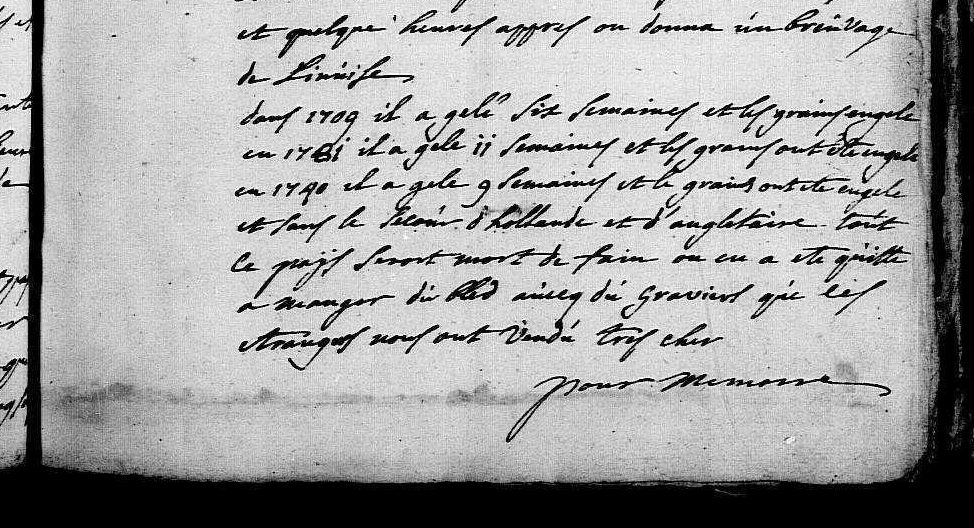 et quelque heures appres on donna un breuvage
de
dans 1709 il a gelé six semaines et les grains engele
en 17 il a gele ii semaines et les grains ont ete engele
en 1740 il a gele 9 semaines et le grains ont ete engele
et sans le secour d'hollande et d'angletaire tout
ce pays seroit mort de fain on en a ete quitte
a manger du bled avecq du graviers que les
etrangers nous ont vendu tres cher
pour memoire